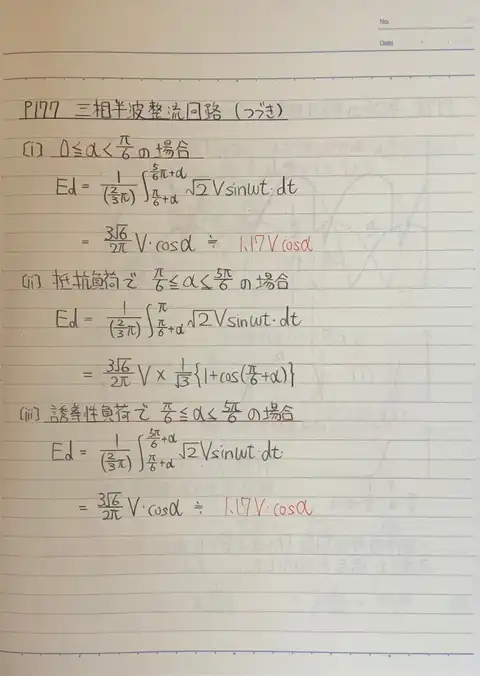 No.
Date
P177 三相半波整流回路 (つづき)
(i) 0≦α<π/6 の場合
Ed = 1/(2/3 π) ∫_{π/6+α}^{5/6 π+α} √2 V sinωt・dt
= 3√6/2π V・cosα ≒ 1.17V cosα
(ii) 抵抗負荷で π/6≦α≦5π/6 の場合
Ed = 1/(2/3 π) ∫_{π/6+α}^{π} √2 V sinωt・dt
= 3√6/2π V × 1/√3 {1+cos(π/6+α)}
(iii) 誘導性負荷で π/6≦α≦5π/6 の場合
Ed = 1/(2/3 π) ∫_{π/6+α}^{5π/6+α} √2 V sinωt・dt
= 3√6/2π V・cosα ≒ 1.17V・cosα